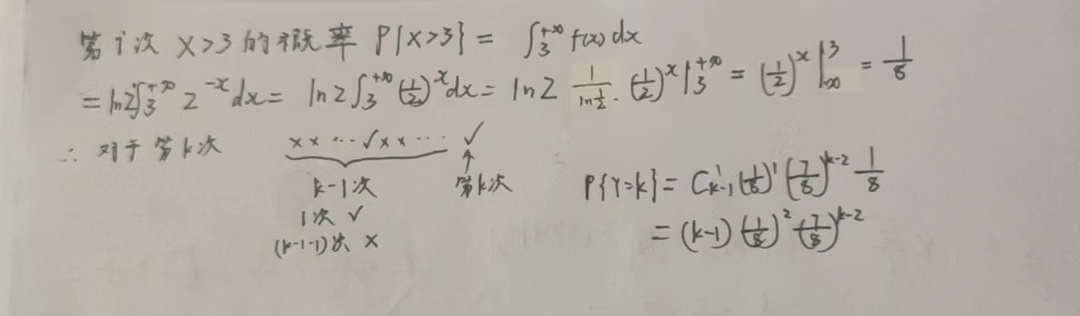 第i次 X>3 的概率 P{X>3} = ∫₃^{+∞} f(x) dx
= ln2∫₃^{+∞} 2^{-x} dx = ln2 ∫₃^{+∞} (1/2)^x dx = ln2 1/ln(1/2) · (1/2)^x |₃^{+∞} = (1/2)^x |_{∞}^{3} = 1/8
∴ 对于第k次 ××…√××… √
k-1次 ↑第k次
1次 √
(k-1-1)次 ×
P{Y=k} = C_{k-1}^1 (1/8)^1 (7/8)^{k-2} 1/8
= (k-1) (1/8)^2 (7/8)^{k-2}